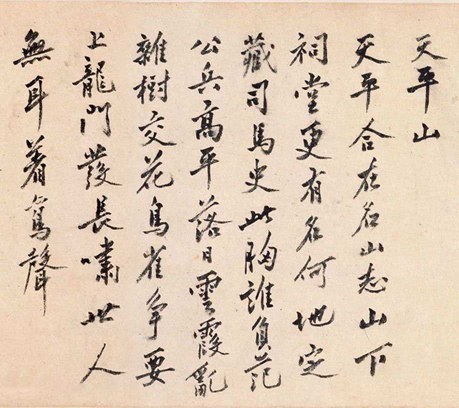 天平山
天平合在名山志山下
祠堂更有名何地定
藏司馬史此胸誰負范
公兵高平落日雲霞亂
雜樹交花鳥雀爭要
上龍門發長嘯世人
無耳着鸞聲